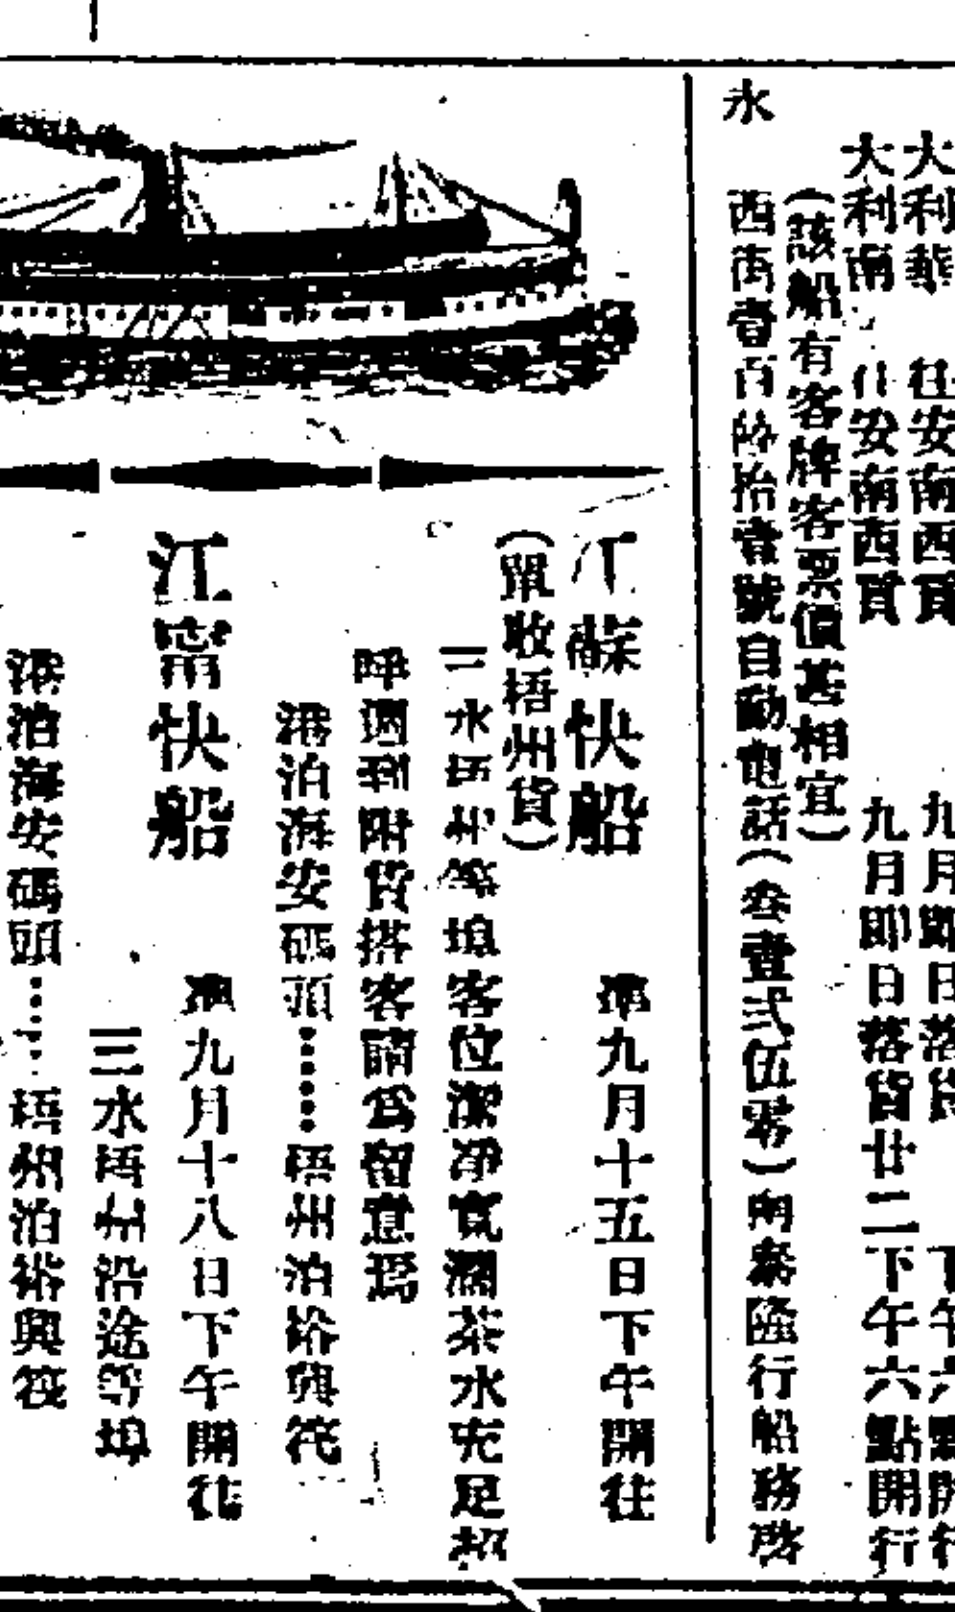 大利華 往安南西貢 九月即日落貨 下午六點開行
大利南 往安南西貢 九月即日落貨廿二下午六點開行
(該船有客牌客票價甚相宜)
永
西街壹百陸拾壹號自動電話(叁壹弍伍零)南泰隆行船務啓
江蘇快船 準九月十五日下午開往
(單收梧州貨)
三水梧州等埠客位潔凈寬濶茶水充足招
呼週到附貨搭客請爲留意焉
港泊海安碼頭……梧州泊裕興筏
江寗快船 準九月十八日下午開往
三水梧州沿途等埠
港泊海安碼頭……梧州泊裕興筏